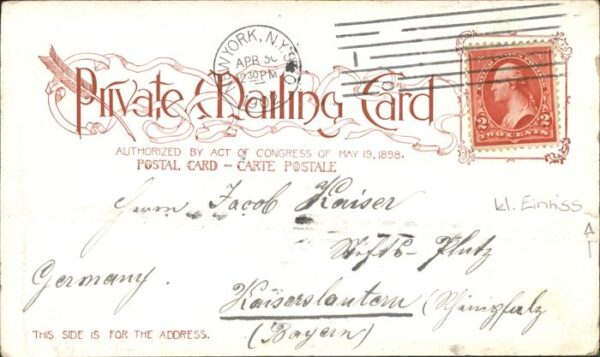 NEW YORK, N.Y.
APR 30
230PM
Private Mailing Card
2 2
TWO CENTS
AUTHORIZED BY ACT OF CONGRESS OF MAY 19, 1898.
POSTAL CARD – CARTE POSTALE
Herrn Jacob Kaiser
kl. Einriss
Stifts-Platz
Germany.
Kaiserslautern (Rheinpfalz
(Bayern)
THIS SIDE IS FOR THE ADDRESS.